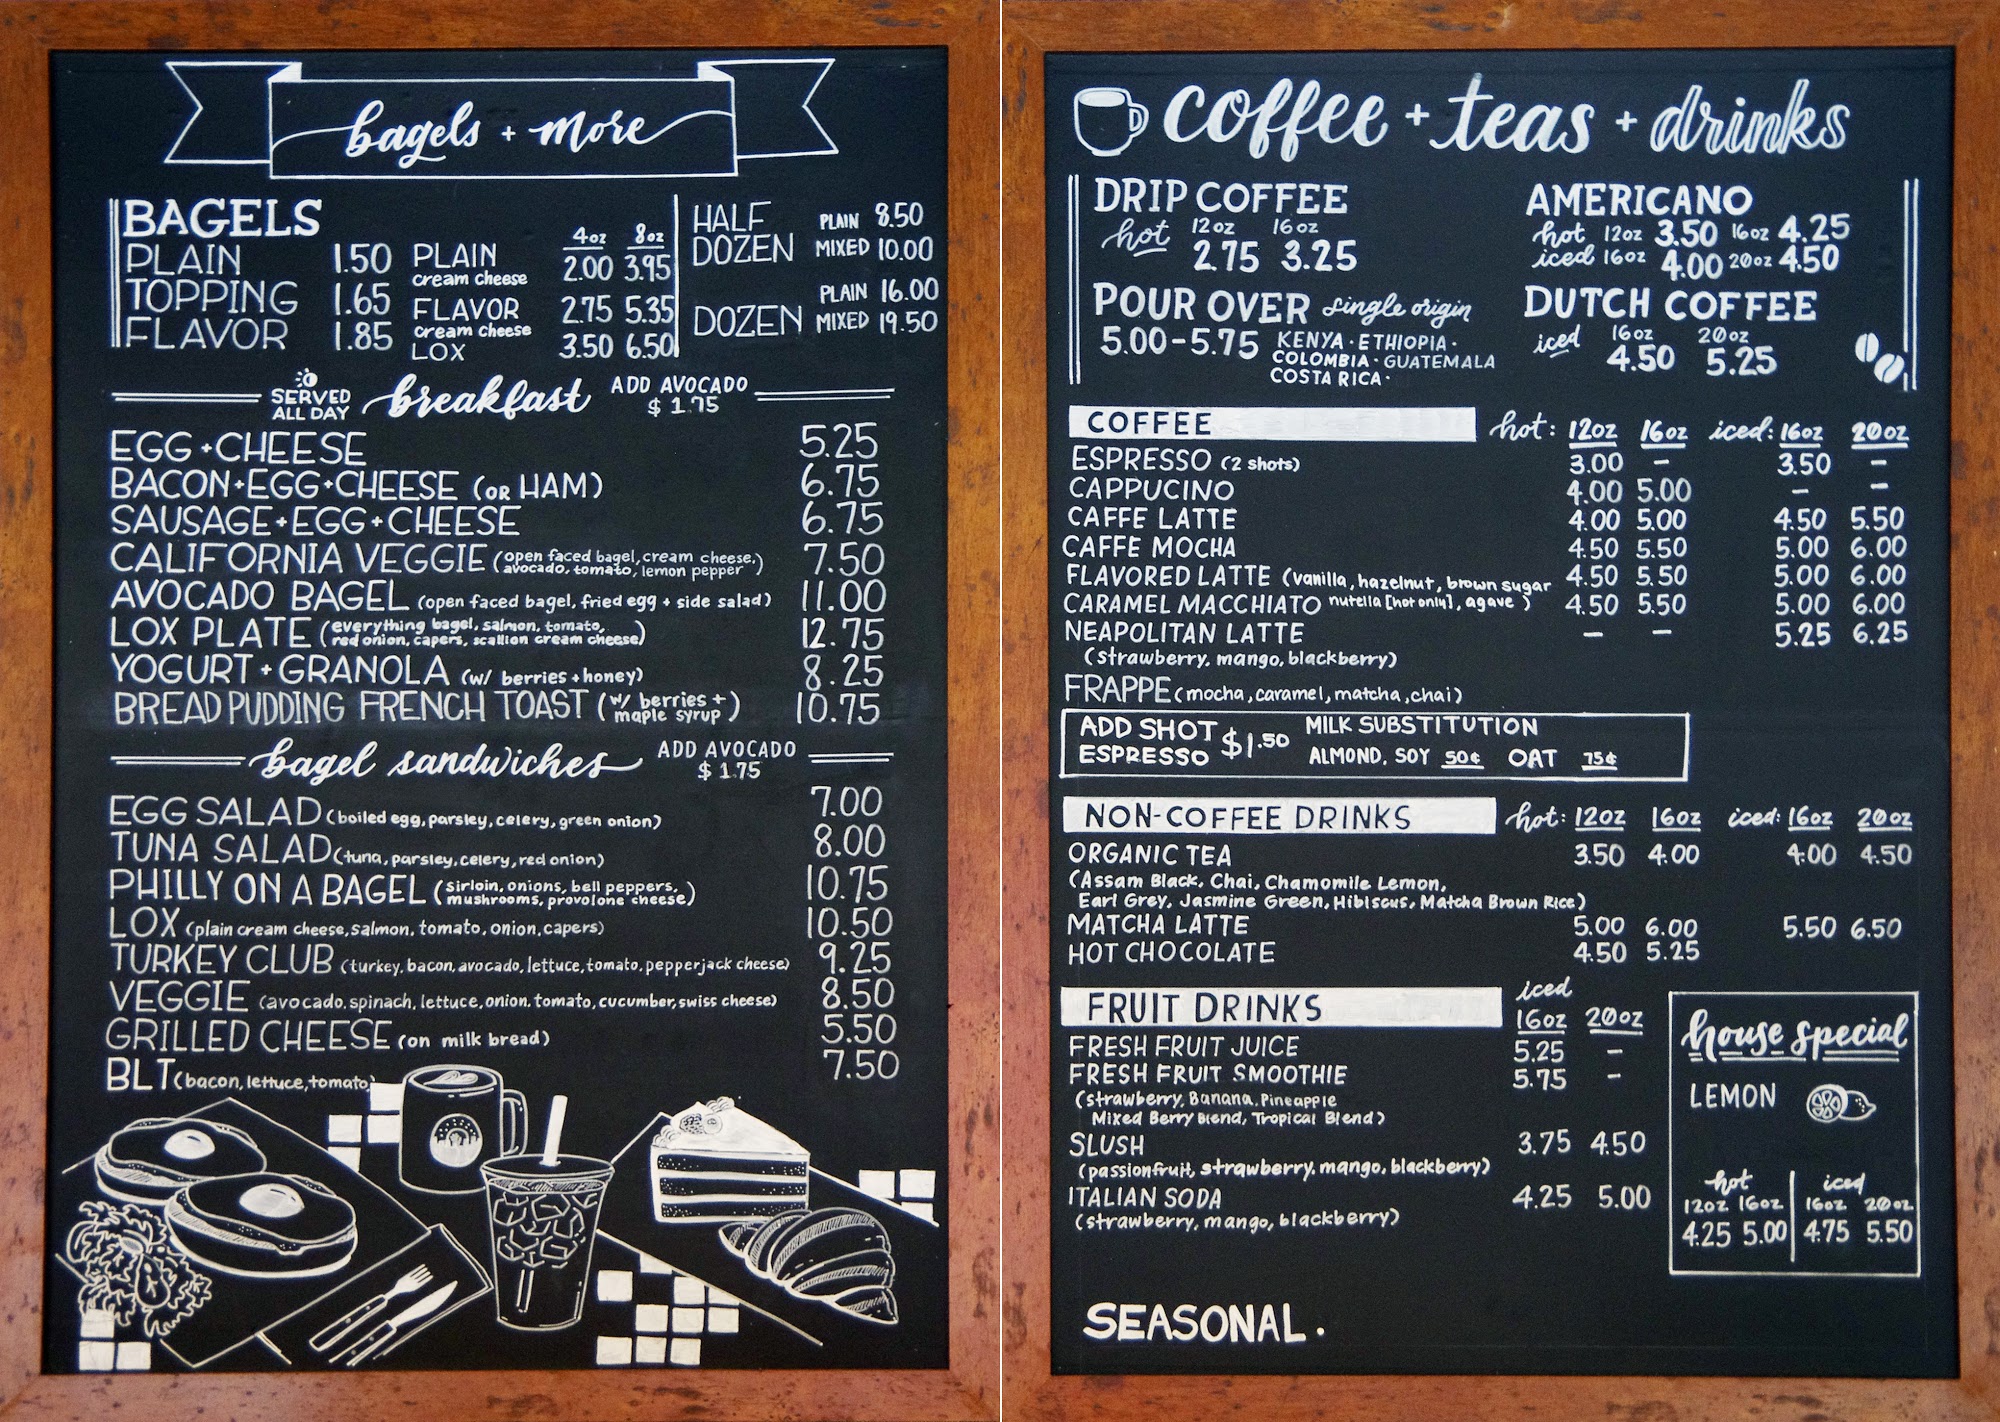 bagels + more
BAGELS
PLAIN 1.50
TOPPING 1.65
FLAVOR 1.85
4oz 8oz
PLAIN 2.00 3.95
cream cheese
FLAVOR 2.75 5.35
cream cheese
LOX 3.50 6.50
HALF PLAIN 8.50
DOZEN MIXED 10.00
PLAIN 16.00
DOZEN MIXED 19.50
SERVED ALL DAY
breakfast
ADD AVOCADO
$ 1.75
EGG + CHEESE 5.25
BACON + EGG + CHEESE (OR HAM) 6.75
SAUSAGE + EGG + CHEESE 6.75
CALIFORNIA VEGGIE (open faced bagel, cream cheese, 7.50
avocado, tomato, lemon pepper)
AVOCADO BAGEL (open faced bagel, fried egg + side salad) 11.00
LOX PLATE (everything bagel, salmon, tomato, 12.75
red onion, capers, scallion cream cheese)
YOGURT + GRANOLA (w/ berries + honey) 8.25
BREAD PUDDING FRENCH TOAST (w/ berries + 10.75
maple syrup)
bagel sandwiches
ADD AVOCADO
$ 1.75
EGG SALAD (boiled egg, parsley, celery, green onion) 7.00
TUNA SALAD (tuna, parsley, celery, red onion) 8.00
PHILLY ON A BAGEL (sirloin, onions, bell peppers, 10.75
mushrooms, provolone cheese)
LOX (plain cream cheese, salmon, tomato, onion, capers) 10.50
TURKEY CLUB (turkey, bacon, avocado, lettuce, tomato, pepperjack cheese) 9.25
VEGGIE (avocado, spinach, lettuce, onion, tomato, cucumber, swiss cheese) 8.50
GRILLED CHEESE (on milk bread) 5.50
BLT (bacon, lettuce, tomato) 7.50
coffee + teas + drinks
DRIP COFFEE
hot 12oz 16oz
2.75 3.25
POUR OVER single origin
5.00-5.75 KENYA · ETHIOPIA ·
COLOMBIA · GUATEMALA
COSTA RICA ·
AMERICANO
hot 12oz 3.50 16oz 4.25
iced 16oz 4.00 20oz 4.50
DUTCH COFFEE
iced 16oz 20oz
4.50 5.25
COFFEE hot: 12oz 16oz iced: 16oz 20oz
ESPRESSO (2 shots) 3.00 - 3.50 -
CAPPUCINO 4.00 5.00 - -
CAFFE LATTE 4.00 5.00 4.50 5.50
CAFFE MOCHA 4.50 5.50 5.00 6.00
FLAVORED LATTE (vanilla, hazelnut, brown sugar 4.50 5.50 5.00 6.00
CARAMEL MACCHIATO nutella [hot only], agave) 4.50 5.50 5.00 6.00
NEAPOLITAN LATTE - - 5.25 6.25
(strawberry, mango, blackberry)
FRAPPE (mocha, caramel, matcha, chai)
ADD SHOT ESPRESSO $1.50
MILK SUBSTITUTION
ALMOND, SOY 50¢ OAT 75¢
NON-COFFEE DRINKS hot: 12oz 16oz iced: 16oz 20oz
ORGANIC TEA 3.50 4.00 4.00 4.50
(Assam Black, Chai, Chamomile Lemon,
Earl Grey, Jasmine Green, Hibiscus, Matcha Brown Rice)
MATCHA LATTE 5.00 6.00 5.50 6.50
HOT CHOCOLATE 4.50 5.25
FRUIT DRINKS iced
16oz 20oz
FRESH FRUIT JUICE 5.25 -
FRESH FRUIT SMOOTHIE 5.75 -
(strawberry, Banana, Pineapple
Mixed Berry Blend, Tropical Blend)
SLUSH 3.75 4.50
(passionfruit, strawberry, mango, blackberry)
ITALIAN SODA 4.25 5.00
(strawberry, mango, blackberry)
house special
LEMON
hot iced
12oz 16oz 16oz 20oz
4.25 5.00 4.75 5.50
SEASONAL.